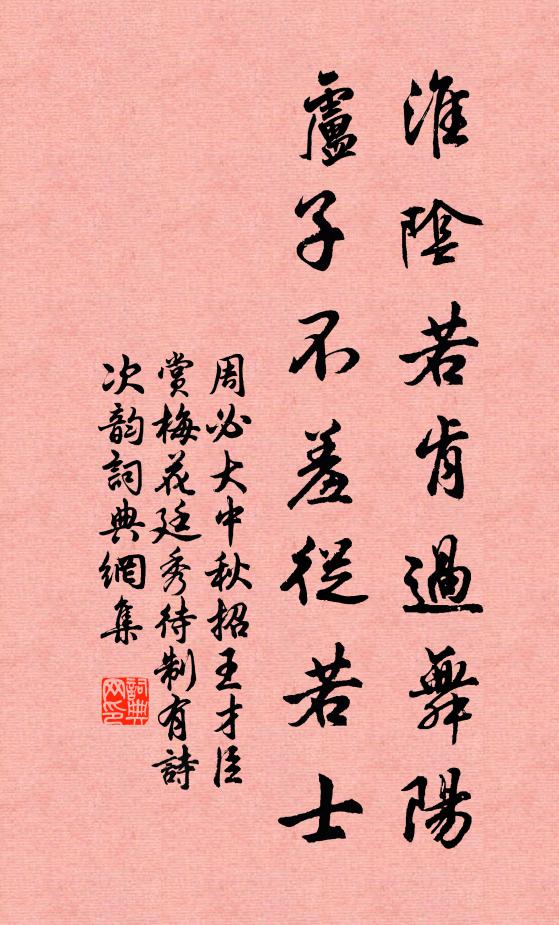 淮陰若肯過舞陽
盧子不羞從若士
周必大中秋招王才臣
賞梅花廷秀待制有詩
次韵詞典網集
詞典網印